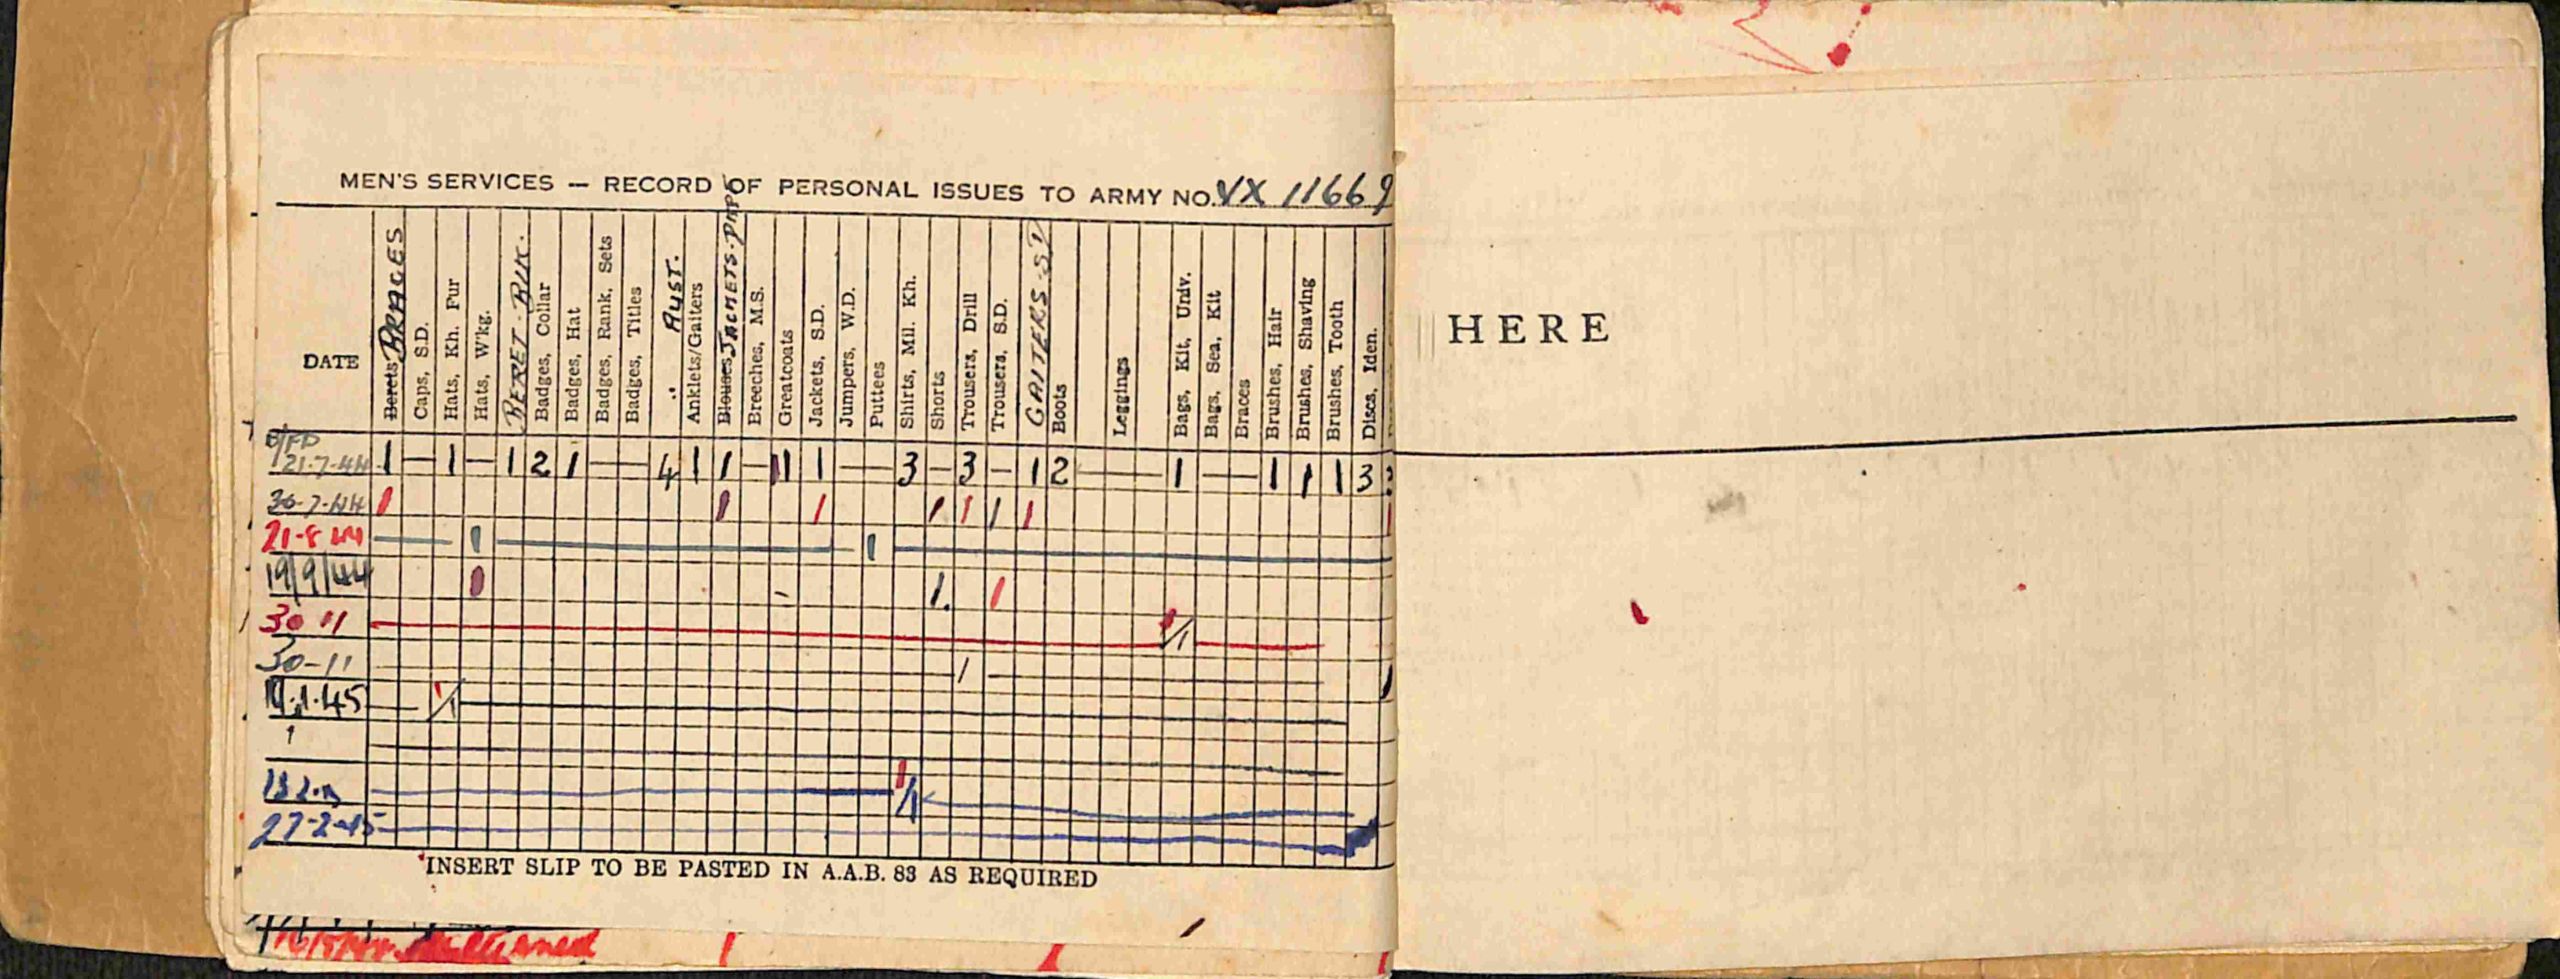 MEN'S SERVICES — RECORD OF PERSONAL ISSUES TO ARMY NO. VX 11669
DATE
Berets BRACES
Caps, S.D.
Hats, Kh. Fur
Hats, W'kg.
BERET. BLK.
Badges, Collar
Badges, Hat
Badges, Rank, Sets
Badges, Titles
" AUST.
Anklets/Gaiters
Blouses JACKETS
Breeches, M.S.
Greatcoats
Jackets, S.D.
Jumpers, W.D.
Puttees
Shirts, Mil. Kh.
Shorts
Trousers, Drill
Trousers, S.D.
GAITERS. S.D
Boots
Leggings
Bags, Kit, Univ.
Bags, Sea, Kit
Braces
Brushes, Hair
Brushes, Shaving
Brushes, Tooth
Discs, Iden.
21.7.44 1 — 1 — 1 2 1 — 4 1 1 — 1 1 — 3 — 3 — 1 2 — 1 — 1 1 1 3
30.7.44 1 1 1 1 1 1 1
21.8.44 — 1 — 1 —
19/9/44 1 1. 1
30 11 — 1/1 —
30-11 1
1.45 — 1/1 —
— 1/1 —
27-2-45 —
INSERT SLIP TO BE PASTED IN A.A.B. 83 AS REQUIRED
HERE